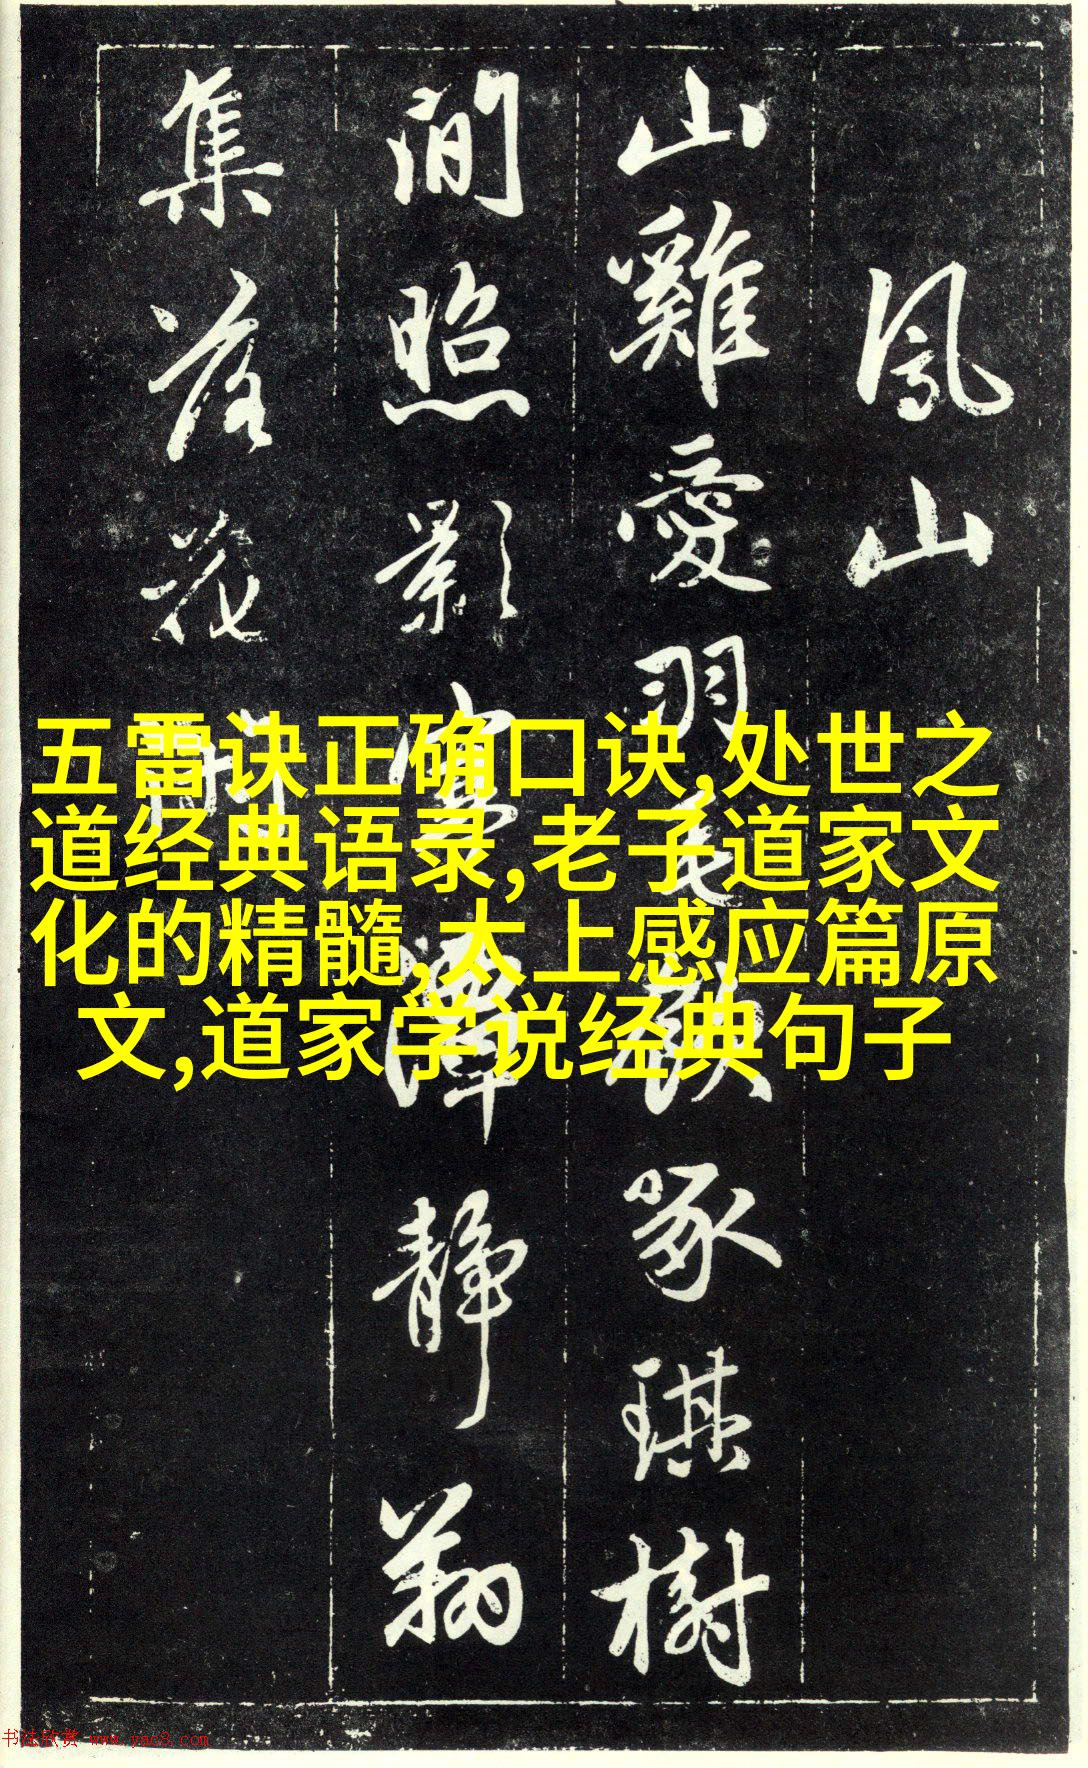 鳳山
山雞愛羽毛飲啄琪樹
間照影寒潭靜翔
集落花
五雷诀正确口诀,处世之
道经典语录,老子道家文
化的精髓,太上感应篇原
文,道家学说经典句子
书法欣赏 www.yac8.com